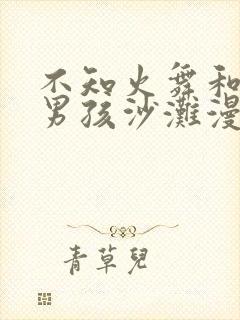 不知火舞和
男孩沙滩漫
青草兒